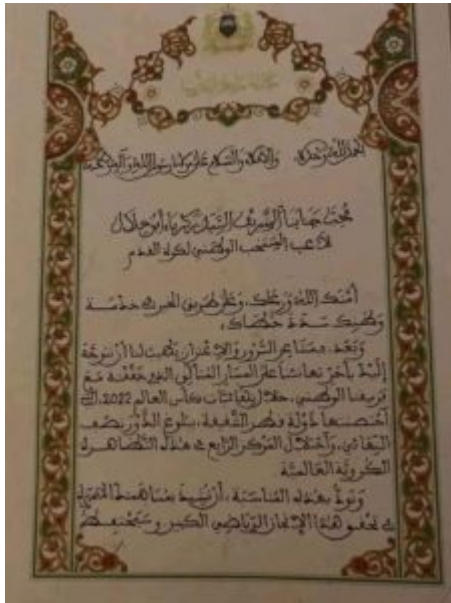 الحمد لله وحده، والصلاة والسلام على مولانا رسول الله وآله وصحبه
محب جنابنا الشريف السيد زكرياء أبو خلال
لاعب المنتخب الوطني لكرة القدم
أمنك الله ورعاك، وعلى طريق الخير في خدمة
وطنك سدد خطاك،
وبعد، فمما يبعث السرور والاعتزاز يطيب لنا أن نتوجه
إليك بأحر تهانئنا على المسار المتألق الذي حققته مع
فريقنا الوطني، خلال نهائيات كأس العالم 2022، التي
احتضنتها دولة قطر الشقيقة، ببلوغ الدور نصف
النهائي، واحتلال المركز الرابع في هذه التظاهرة
الكروية العالمية
ونود بهذه المناسبة، أن نشيد بمساهمتك المتميزة
في تحقيق هذا الإنجاز الرياضي الكبير